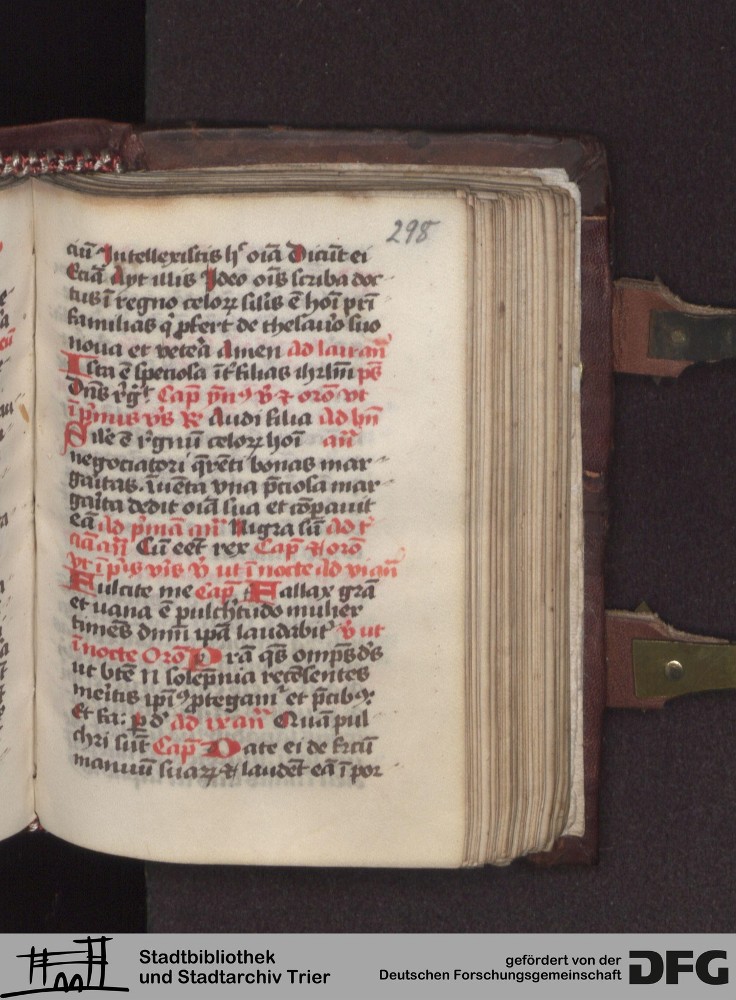 298
ciū Intellexistis h̄ oīa Dicūt ei
Etiā Ayt illis Ideo oīs scriba doc-
tus ī regno celoꝝ silīs ē hoī prī
familias q̇ ꝓfert de thesauro suo
noua et vetera Amen Ad laū añ
Ista ē speciosa īt̄ filias ihrlm̄ ps̄
Dn̄s rͥgͭ Cap̄ ꝟ ⁊ orō vt
ī pͥmis vͥs R̄ Audi filia Ad bn̄
Sile ē rͥgnū celoꝝ hoī añ
negociatori q̄rēti bonas mar-
gaͥtas. īuēta vna p̄ciosa mar-
gaͥta dedit oīa sua et cōpauit
eā Ad pͥmā añ Nigra sū Ad t̄
ciā añ Cū eēt rex Cap̄ ⁊ orō
vt ī pͥs vͥis ꝟ ut ī nocte Ad vi añ
Fulcite me Cap̄ Fallax grā
et uana ē pulchͥtudo mulier
timēs dnm̄ ip̄a laudabit᷑ ꝟ ut
ī nocte Orō Prā qs̄ omp̄s ds̄
ut btē N solēpnia recēsentes
meͥtis ip̄i⁹ ꝓtegam᷑ et p̄cib⁹
Et fa: ꝑ d̄ Ad ix añ Quā pul
chri sūt Cap̄ Date ei de frctū
manuū suaꝝ ⁊ laudēt eā ī por
Stadtbibliothek
und Stadtarchiv Trier
gefördert von der
Deutschen Forschungsgemeinschaft
DFG